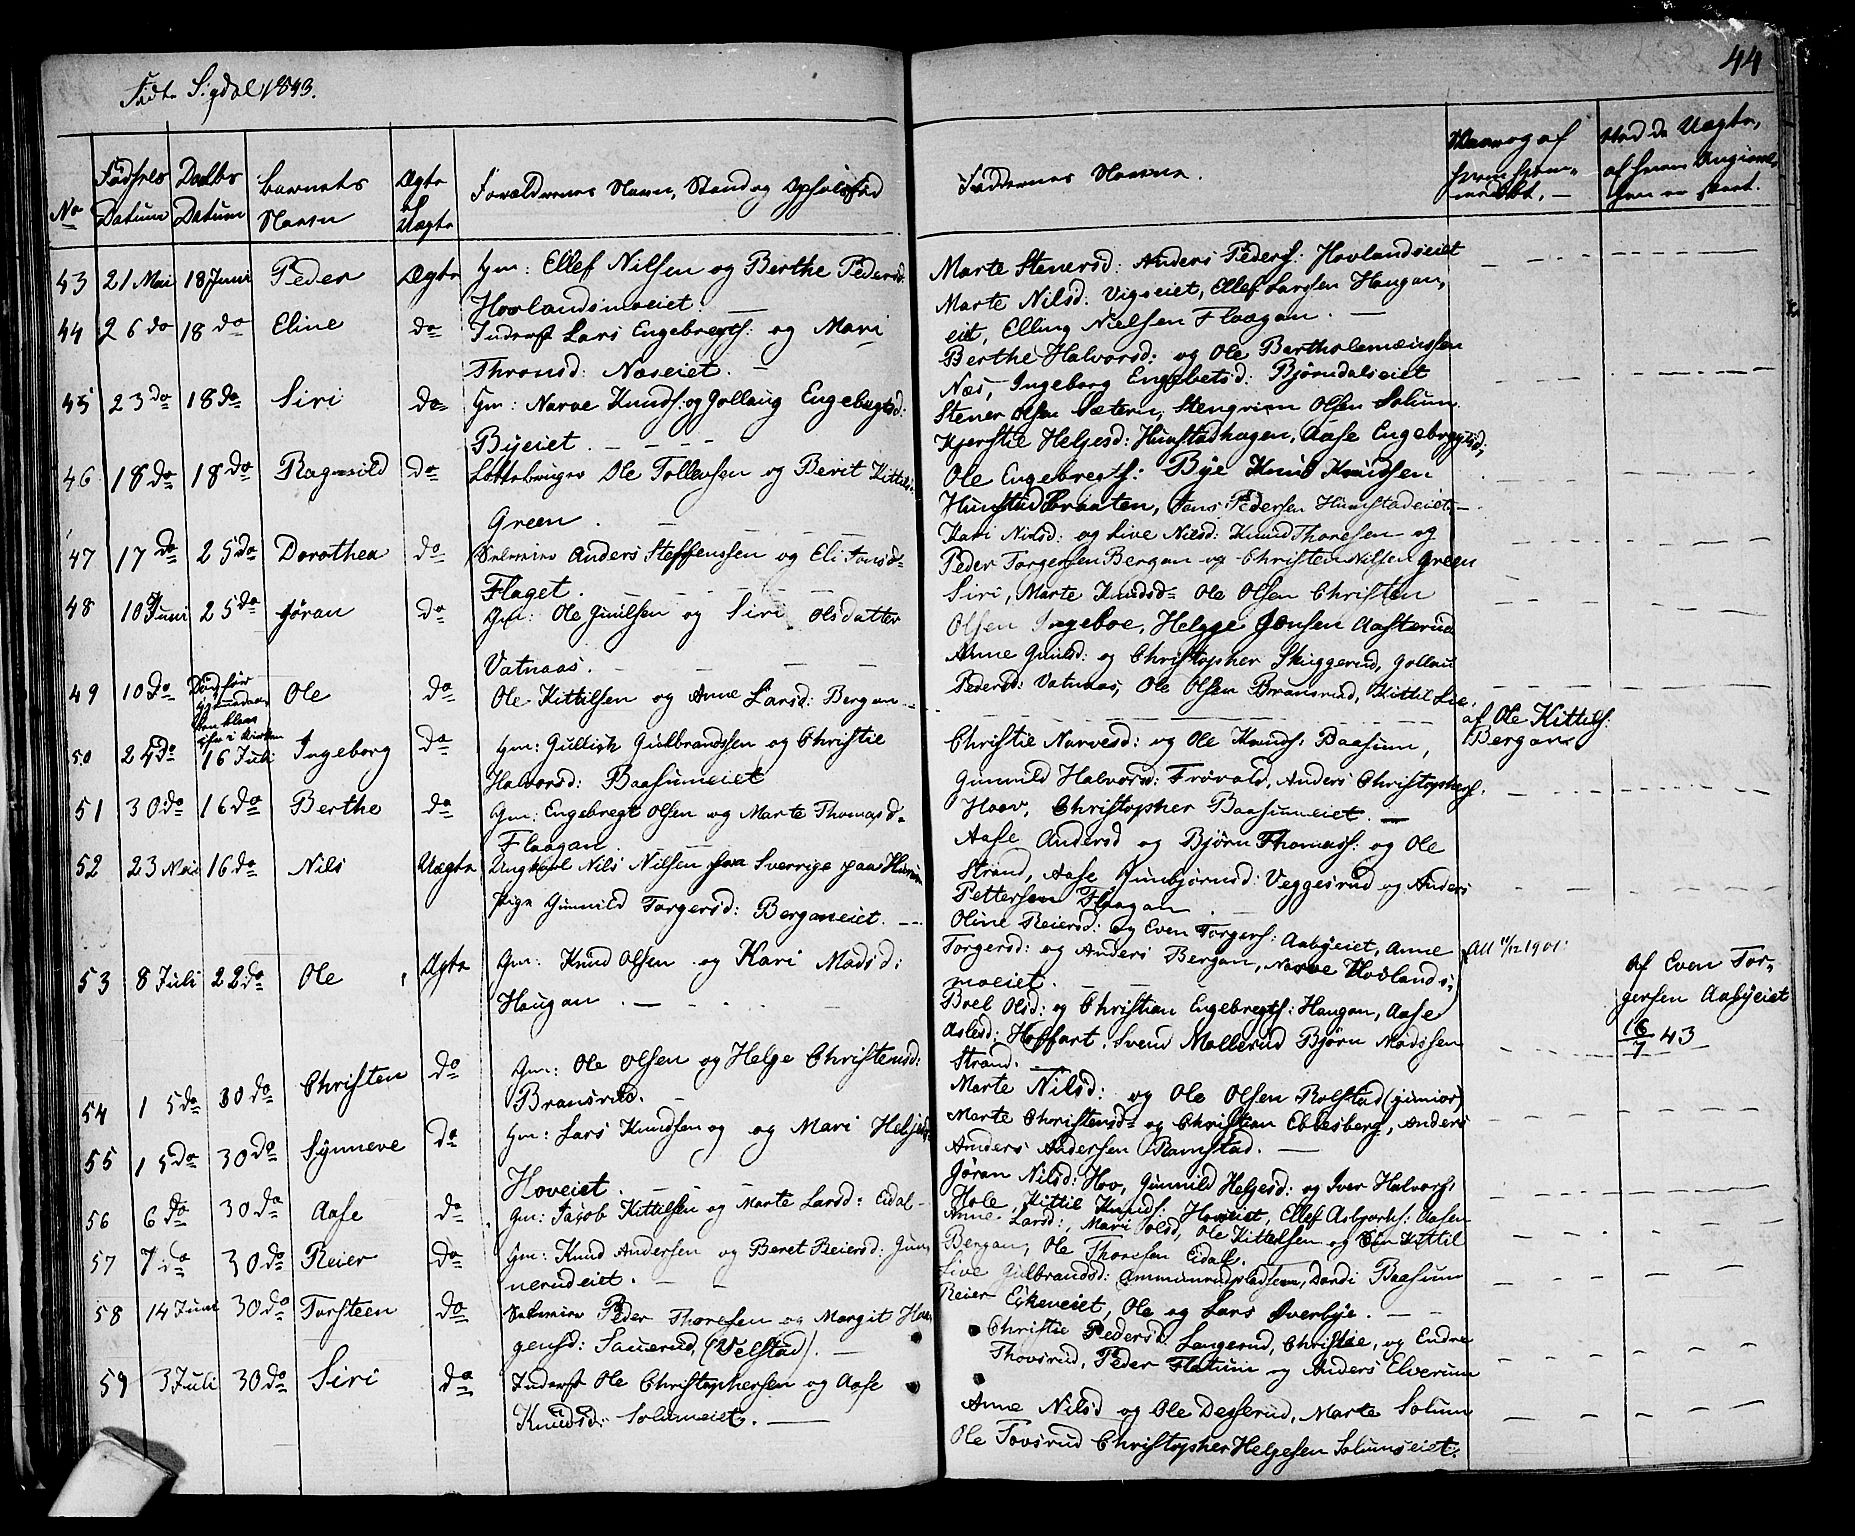 Födte Sigdal 1843.
44
No
Födsels Datum
Daabs Datum
Barnets Navn
Ægte el Uægte
Forældrenes Navn, Stand og Opholdsted
Faddernes Navne.
43 21 Mai 18 Juni Peder Ægte Gm: Ellef Nilsen og Berthe Pedersd:
Hovlandsmoeiet. —
44 26 do 18 do Eline do Inderst Lars Engebregts: og Mari
Thronsd: Næseiet. —
45 23 do 18 do Siri do Gm: Narve Knuds: og Gollaug Engebregtsd:
Byeiet. — — —
46 18 do 18 do Ragnild do Ole Tollevsen og Berit Kittils:
Green. —
47 17 do 25 do Dorothea do Anders Steffenssen og Eli Jonsd=
Flaget. — — —
48 10 Juni 25 do Jøran do Gm: Ole Gunilsen og Siri Olsdatter
Vatnaas. — — —
49 10 do Ole do Ole Kittilsen og Anne Larsd: Bergan —
50 25 do 16 Juli Ingeborg do Gm: Gullich Gulbrandssen og Christie
Halvorsd: Baasumeiet
51 30 do 16 do Berthe do Gm: Engebregt Olsen og Marte Thomasd=
Flaagan. —
52 23 Mai 16 do Nils Uægte Ungkarl Nils Nilsen fra Sverrige
Pige Gunnild Torgersd: Berganeiet. —
53 8 Juli 22 do Ole Ægte Gm: Knud Olsen og Kari Madsd:
Haugan. —
54 15 do 30 do Christen do Gm: Ole Olsen og Helge Christensd:
Bransrud. —
55 15 do 30 do Synneve do Gm: Lars Knudsen og og Mari Helges
Hoveiet. — —
56 6 do 30 do Aase do Gm: Jacob Kittilsen og Marte Larsd: Eidal —
57 7 do 30 do Reier do Gm: Knud Andersen og Beret Reiersd: Gun
nerudeiet. —
58 14 Juni 30 do Torsteen do Peder Thoresen og Margit Haa
gensd: Sauerud, (Velstad). —
59 3 Juli 30 do Siri do Inderst Ole Christophersen og Aase
Knudsd: Solumeiet. —
Marte Stenersd: Anders Peders: Hovlandseiet
Marte Nilsd: Vigseiet, Ellef Larssen Haugan,
eit, Elling Nielsen Flaagan. —
Berthe Halvorsd: og Ole Bartholemæussen
Næs, Ingeborg Engebetsd: Bjørndalseiet
Stener Olsen Sætern, Stengrim Olsen Solum
Kjerstie Helgesd: Hunstadhagen, Aase Engebregtsd:
Ole Engebregts: Bye Knud Knudsen
Hunstadbraaten, Hans Pedersen Hunstadeiet —
Kari Nilsd: og Live Nilsd: Knud Thoresen og
Peder Torgersen Bergan og Christen Nilsen Green
Siri, Marte Knudsd= Ole Olsen Christen
Olsen Ingeboe, Helgge Jensen Aasterud
Anne Gunilsd: og Christopher Skuggerud, Gollau
Pedersd: Vatnaas, Ole Olsen Bransrud, Kittil Lie.
af Ole Kittils:
Bergan
Christie Narvesd: og Ole Knuds: Baasum,
Gunnild Halvorsd: Frövold, Anders Christophers:
Hoov, Christopher Baasumeiet. —
Aase Andersd og Bjørn Thomass: og Ole
Strand, Aase Gunbjørnsd: Veggesrud og Anders
Pettersen Flaagan —
Oline Reiersd: og Even Torgers: Aabyeiet, Anne
Torgersd: og Anders Bergan, Narve Hovlands
moeiet. — —
Att 11/12 1901:
af Even Tor-
gersen Aabyeiet
16/7 43
Boel Olsd: og Christian Engebregts: Haugan, Aase
Aslesd: Hoffart, Svend Mollerud Bjørn Madssen
Strand.
Marte Nilsd: og Ole Olsen Rolstad (junior)
Marte Christensd= og Christian Ebbesberg, Anders
Anders Andersen Ramstad. —
Jöran Nilsd: Hov, Gunnild Helgesd: og Iver Halvors:
Hole, Kittil Knuds: Hoveiet, Ellef Asbjørns: Aasen
Anne Larsd:, Mari Olsd, Ole Kittilsen og Kittil
Bergan, Ole Thoresen Eidal.
Live Gulbrandsd: Ammunrudpladsen, Dordi Baasum
Reier Eikeveiet, Ole og Lars Överbye. — —
Christie Pedersd: Langerud, Christie, og Endre
Thovsrud, Peder Flatum og Anders Elverum
Anne Nilsd og Ole Desserud, Marte Solum
Ole Tovsrud Christopher Helgesen Solumseiet.